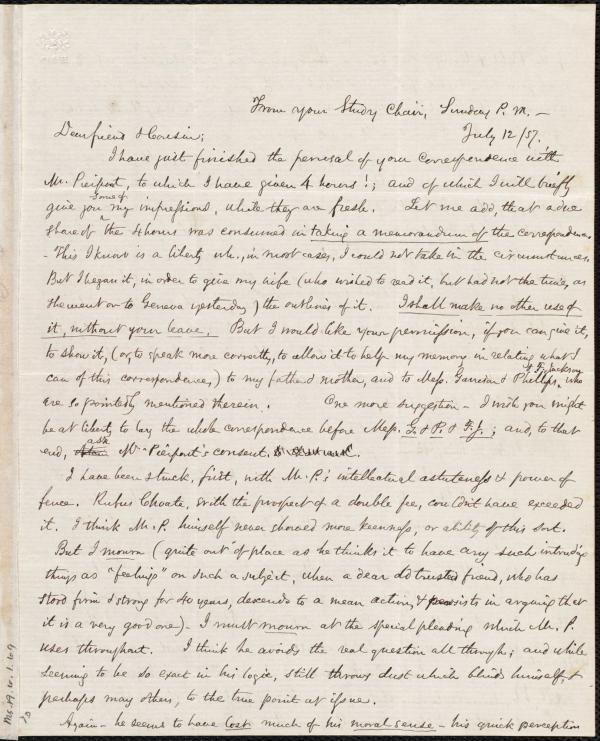 From your Study Chair, Sunday P.M. —
July 12 /57.
Dear friend & Cousin;
I have just finished the perusal of your correspondence with
Mr. Pierpont, to which I have given 4 hours!; and of which I will briefly
give you some of my impressions, while they are fresh. Let me add, that a due
share of the 4 hours was consumed in taking a memorandum of the correspondence.
- This I know is a liberty wh., in most cases, I could not take in the circumstances.
But I began it, in order to give my wife (who wished to read it, but had not the time, as
she went on to Geneva yesterday) the outlines of it. I shall make no other use of
it, without your leave. But I would like your permission, if you can give it,
to show it, (or, to speak more correctly, to allow it to help my memory in relating what I
can of this correspondence,) to my father & mother, and to Mess. Garrison & Phillips, & F. Jackson, who
are so pointedly mentioned therein. One more suggestion - I wish you might
be at liberty to lay the whole correspondence before Mess. G. & P. & F.J.; and, to that
end, ask Mr. Pierpont's consent.
I have been struck, first, with Mr. P.'s intellectual astuteness & power of
fence. Rufus Choate, with the prospect of a double fee, couldn't have exceeded
it. I think Mr. P. himself never showed more keenness, or ability of this sort.
But I mourn (quite out of place as he thinks it to have any such intruding
things as "feelings" on such a subject, when a dear old trusted friend, who has
stood firm & strong for 40 years, descends to a mean action, & persists in arguing that
it is a very good one) - I must mourn at the special pleading which Mr. P.
uses throughout. I think he avoids the real question all through; and while
seeming to be so exact in his logic, still throws dust which blinds himself, &
perhaps may others, to the true point at issue.
Again - he seems to have lost much of his moral sense - his quick perception
Ms. A. 1. 2